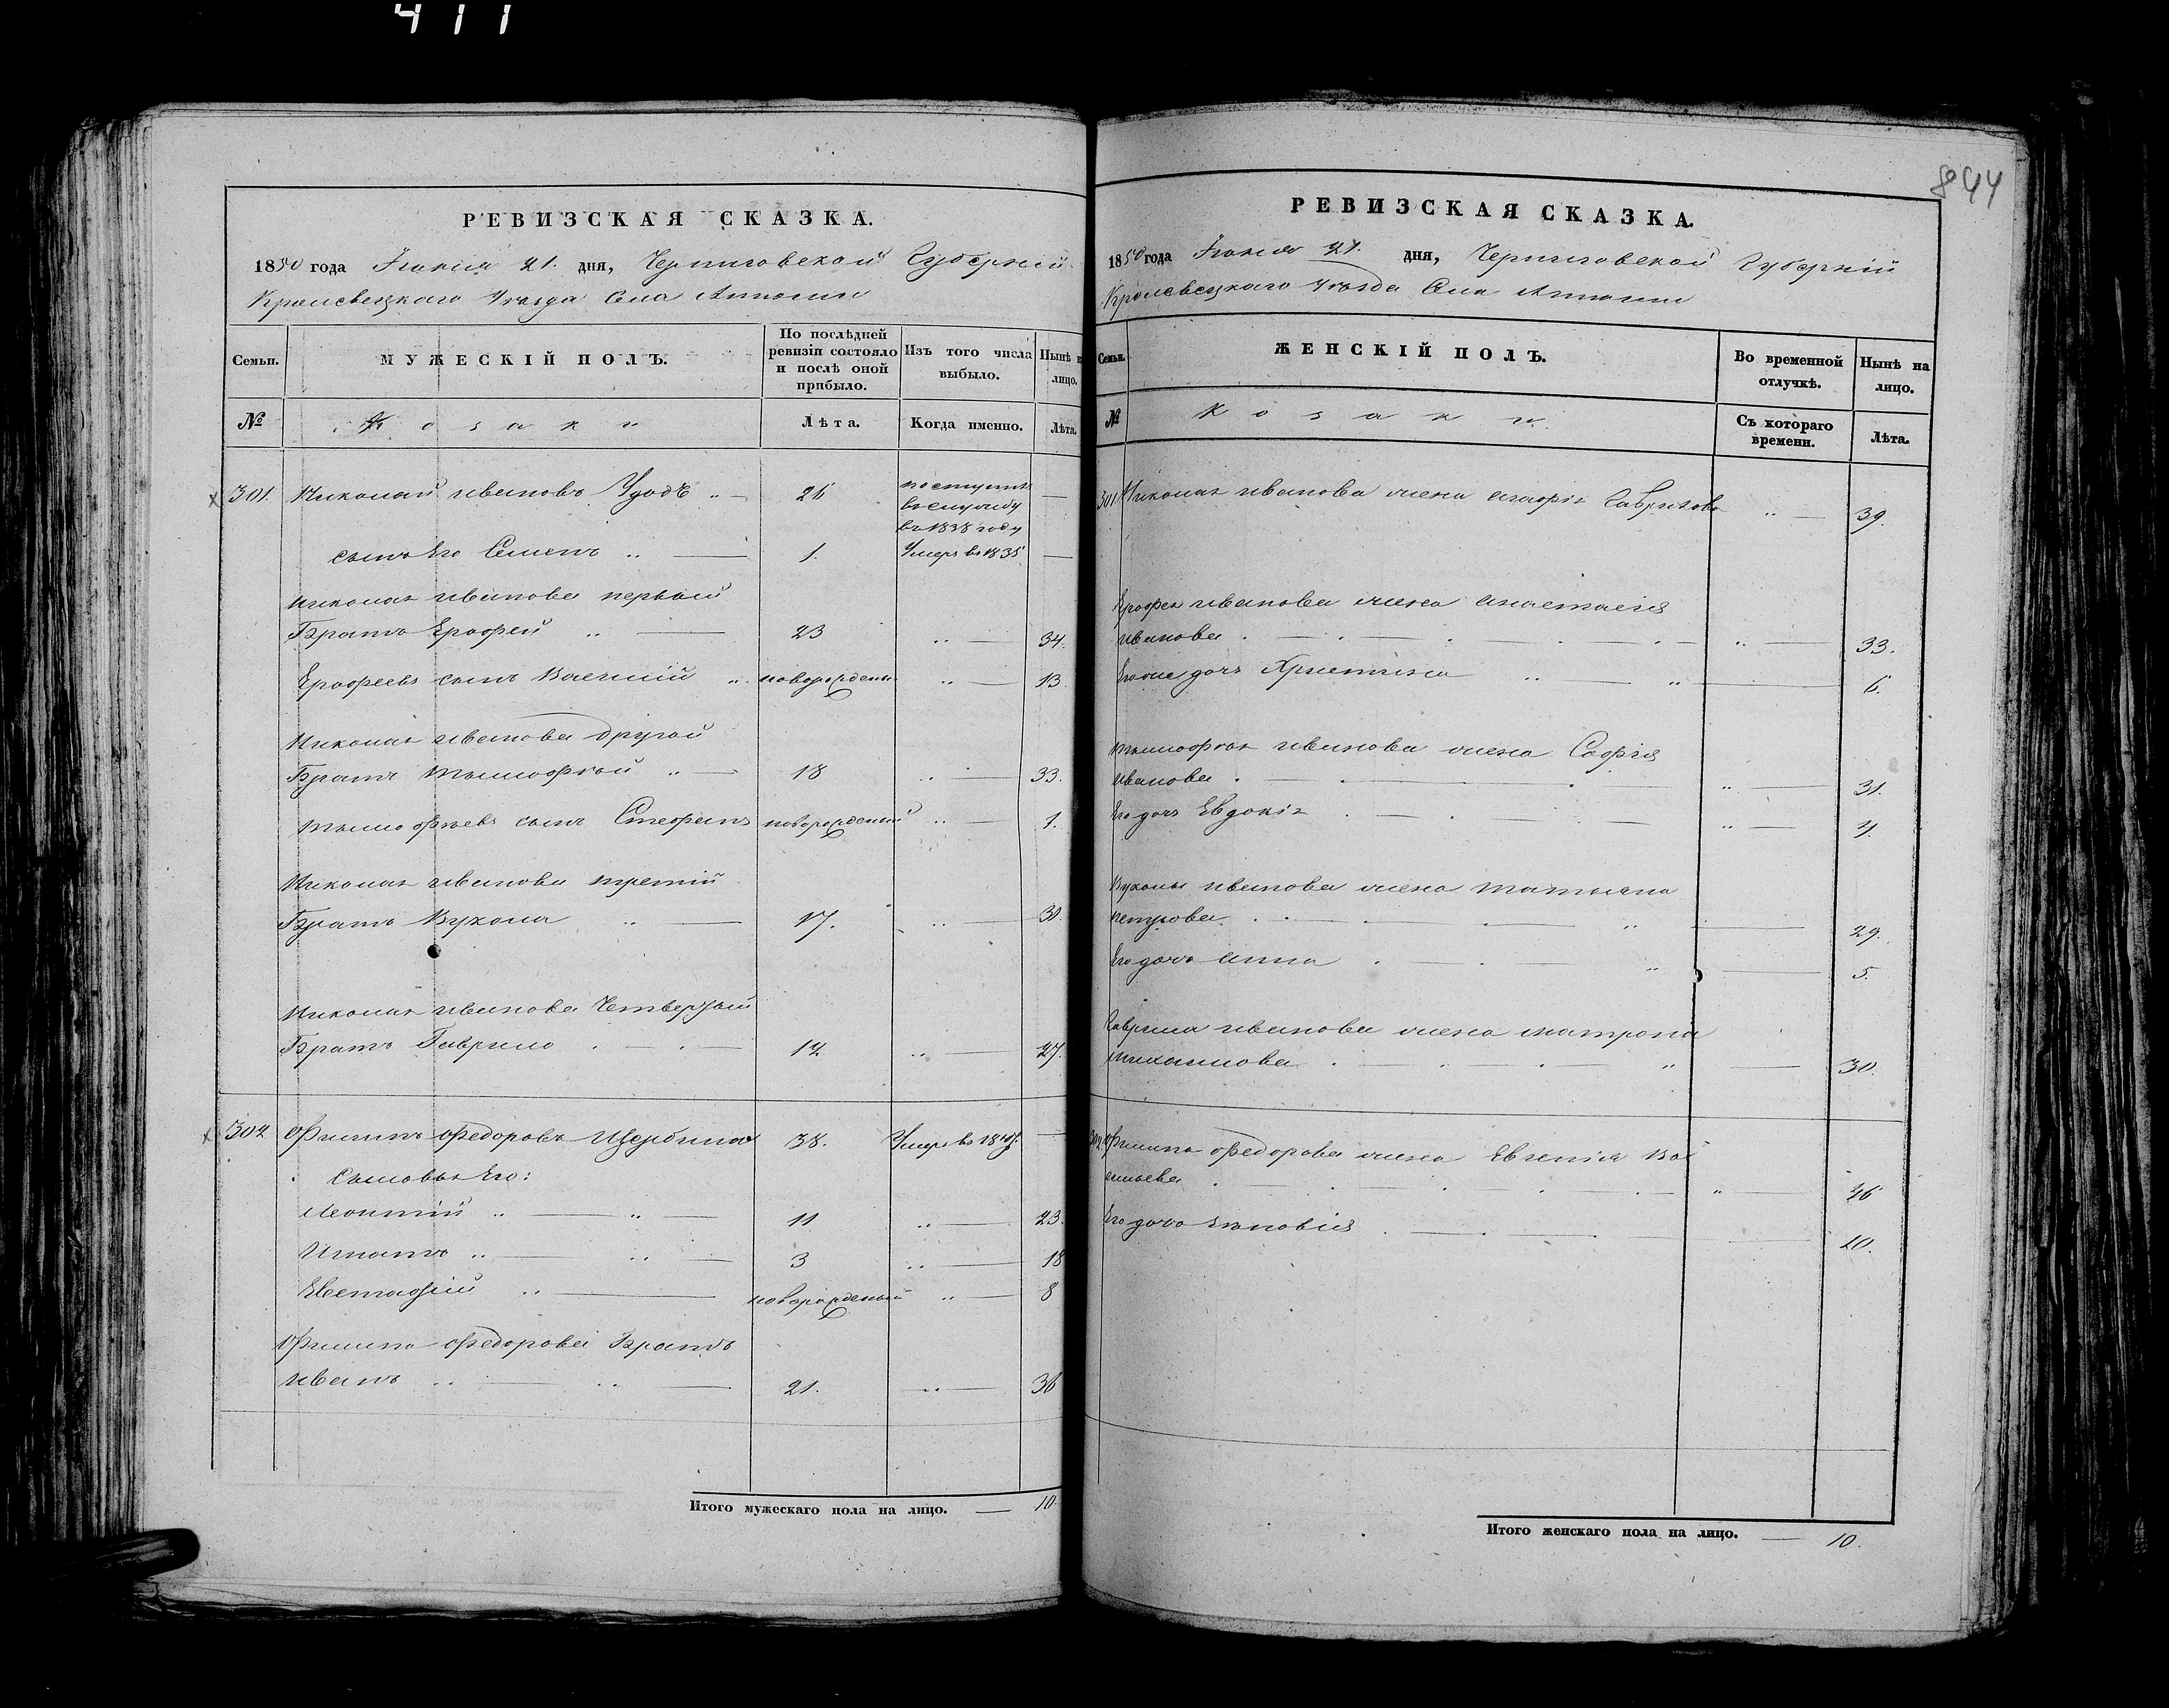 411
844
РЕВИЗСКАЯ СКАЗКА.
1850 года Іюния 21. дня, Черниговской Губерніи
Кролевецкаго Уѣзда Села
Семьи. МУЖЕСКІЙ ПОЛЪ. По послѣдней ревизіи состояло и послѣ оной прибыло. Изъ того числа выбыло. Нынѣ на лицо.
№ Козаки Лѣта. Когда именно. Лѣта.
301. Николай ивановъ Удодъ 26 поступилъ
въ службу
въ 1838 году
сынъ Его Семенъ 1. Умеръ въ 1835
Николая иванова первый
Братъ Ерофей 23 34.
Ерофеевъ сынъ Василій новорожденъ 13
Николая иванова другой
Братъ Тимофѣй 18 33.
Тимофѣевъ сынъ Стефанъ новорожденый 1.
Николая иванова третій
Братъ Вукола 17. 30.
Николая иванова Четвертый
Братъ Гаврило 12 27.
302 Филипъ Федоровъ Щербина 38. Умеръ въ
Сыновья Его:
Леонтій 11 23.
Игнатъ 3 18
Евстафій новорожденый 8
Филипа Федорова Братъ
иванъ 21. 36
Итого мужескаго пола на лицо. 10.
РЕВИЗСКАЯ СКАЗКА.
1850 года Іюния 21. дня, Черниговской Губерніи
Кролевецкаго Уѣзда Села
Семьи. ЖЕНСКІЙ ПОЛЪ. Во временной отлучкѣ. Нынѣ на лицо.
№ Козаки Съ котораго времени. Лѣта.
301 Николая иванова жена агафія Гаврилова 39.
Ерофея иванова жена анастасія
иванова 33.
Его же дочь Христина 6.
Тимофѣя иванова жена Софія
иванова 31.
Его дочь Евдокія
Вуколы иванова жена татьяна
петрова 29.
Его дочь анна 5.
Гаврила иванова жена матрона
михайлова 30.
302. Филипа Федорова жена Евгенія Ва
сильева 46
Его дочь зѣновія 10.
Итого женскаго пола на лицо. 10.